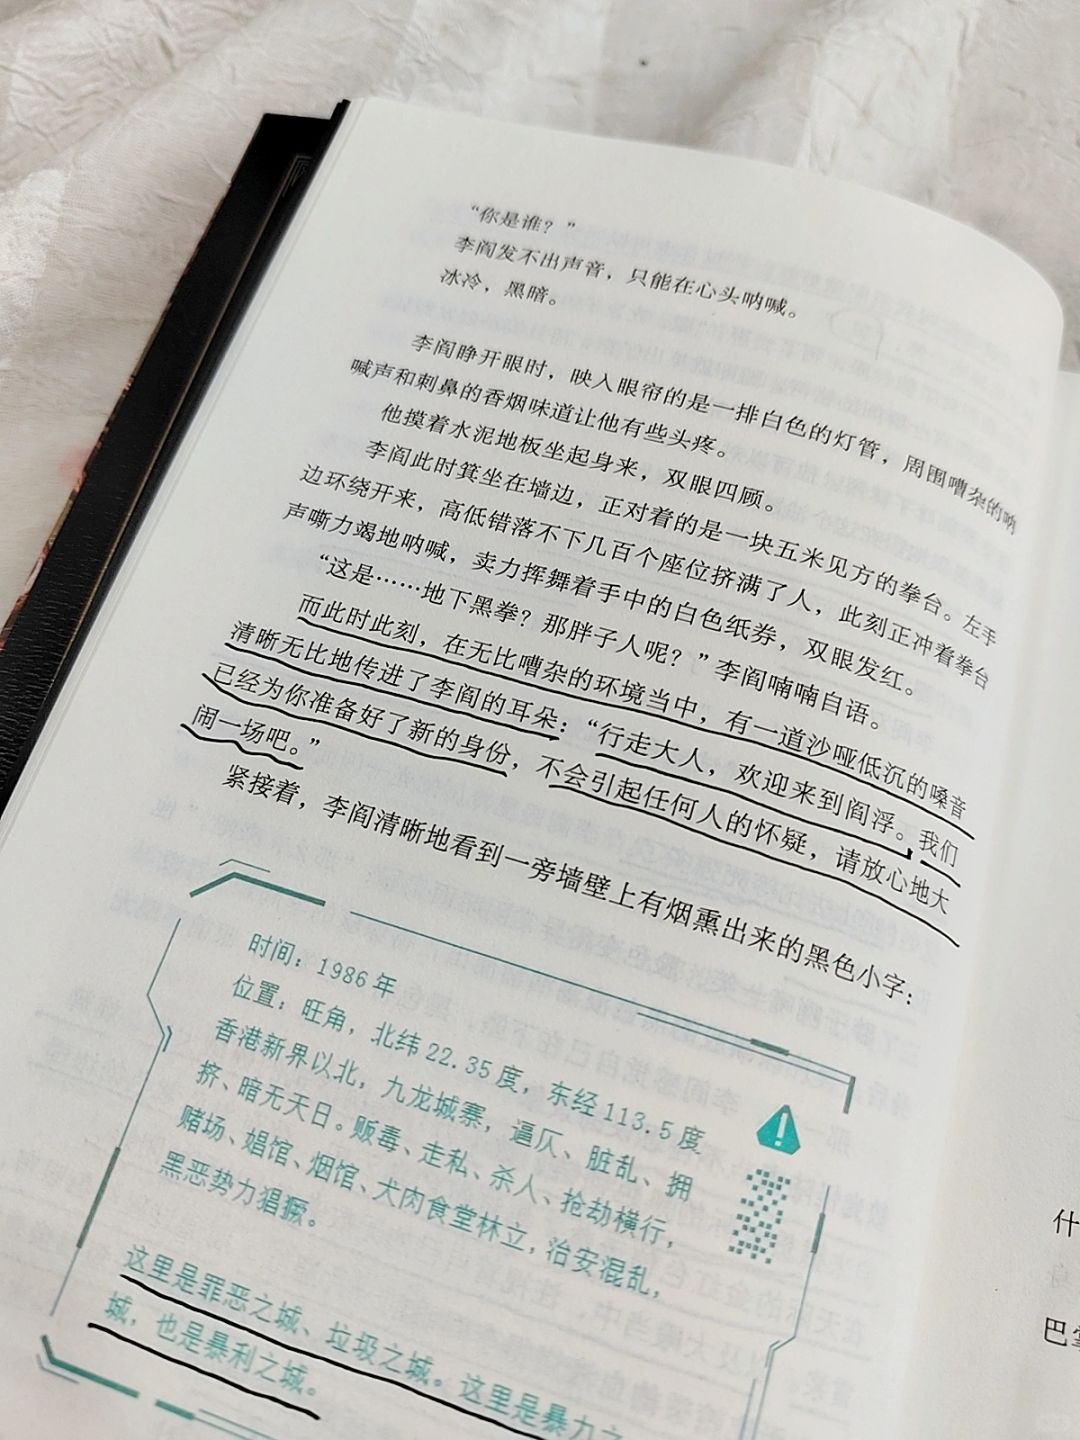 “你是谁？”
李阎发不出声音，只能在心头呐喊。
冰冷，黑暗。
李阎睁开眼时，映入眼帘的是一排白色的灯管，周围嘈杂的呐
喊声和刺鼻的香烟味道让他有些头疼。
他摸着水泥地板坐起身来，双眼四顾。
李阎此时箕坐在墙边，正对着的是一块五米见方的拳台。左手
边环绕开来，高低错落不下几百个座位挤满了人，此刻正冲着拳台
声嘶力竭地呐喊，卖力挥舞着手中的白色纸券，双眼发红。
“这是……地下黑拳？那胖子人呢？”李阎喃喃自语。
而此时此刻，在无比嘈杂的环境当中，有一道沙哑低沉的嗓音
清晰无比地传进了李阎的耳朵：“行走大人，欢迎来到阎浮。我们
已经为你准备好了新的身份，不会引起任何人的怀疑，请放心地大
闹一场吧。”
紧接着，李阎清晰地看到一旁墙壁上有烟熏出来的黑色小字：
时间：1986年
位置：旺角，北纬22.35度，东经113.5度
香港新界以北，九龙城寨，逼仄、脏乱、拥
挤、暗无天日。贩毒、走私、杀人、抢劫横行，
赌场、娼馆、烟馆、犬肉食堂林立，治安混乱，
黑恶势力猖獗。
这里是罪恶之城、垃圾之城。这里是暴力之
城，也是暴利之城。
什
巴掌